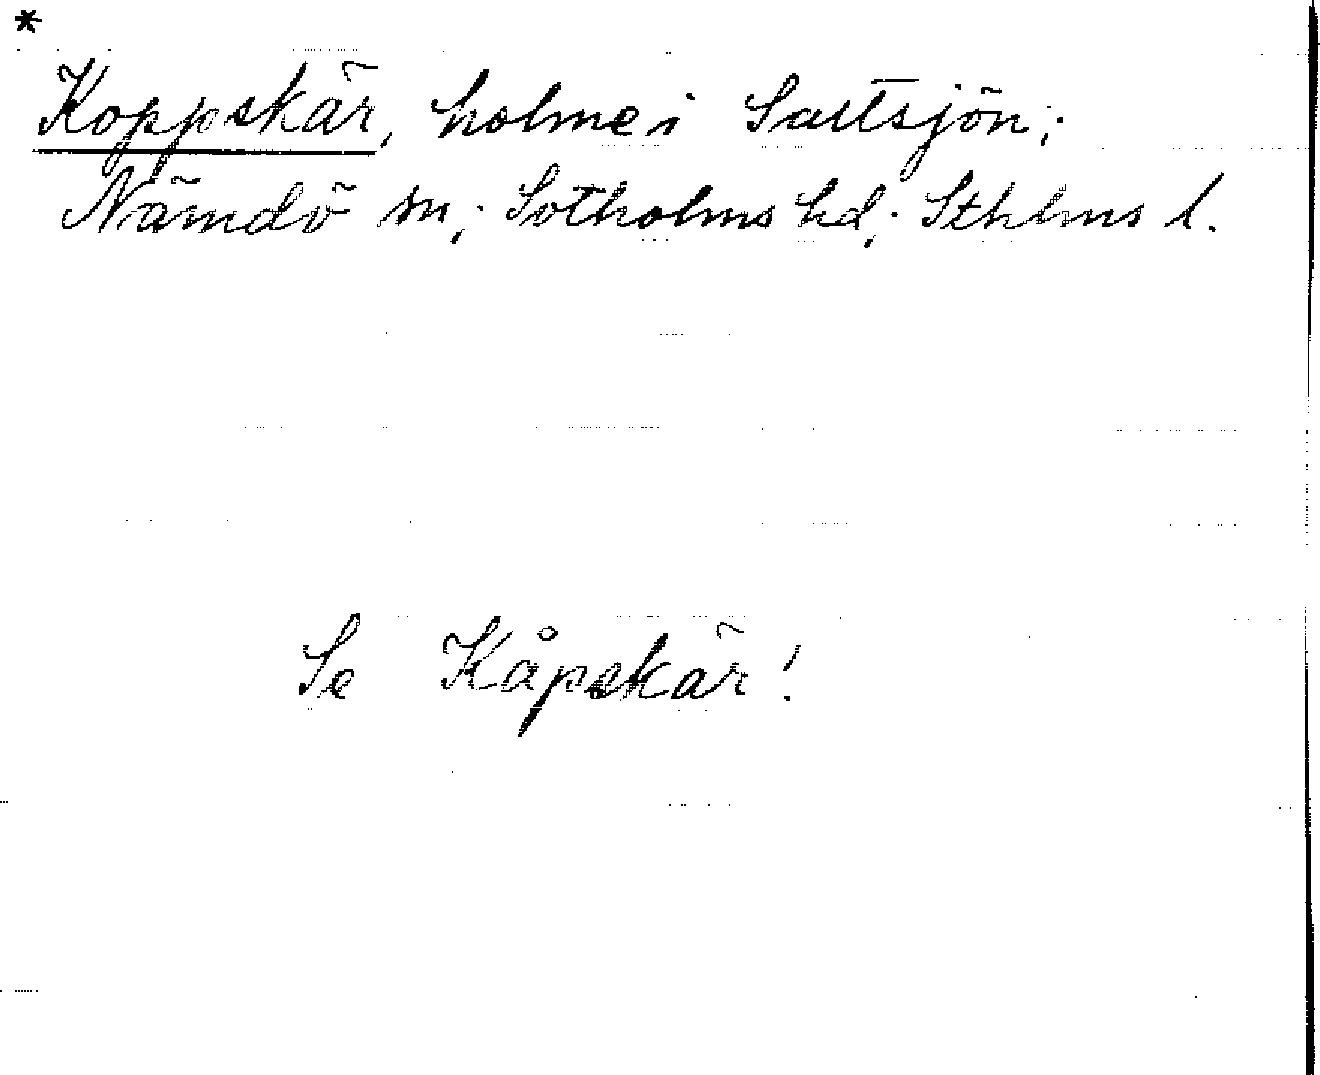 *
Koppskär, holme i Saltsjön;
Nämdö sn; Sotholms hd; Sthlms l.
Se Kåpskär!